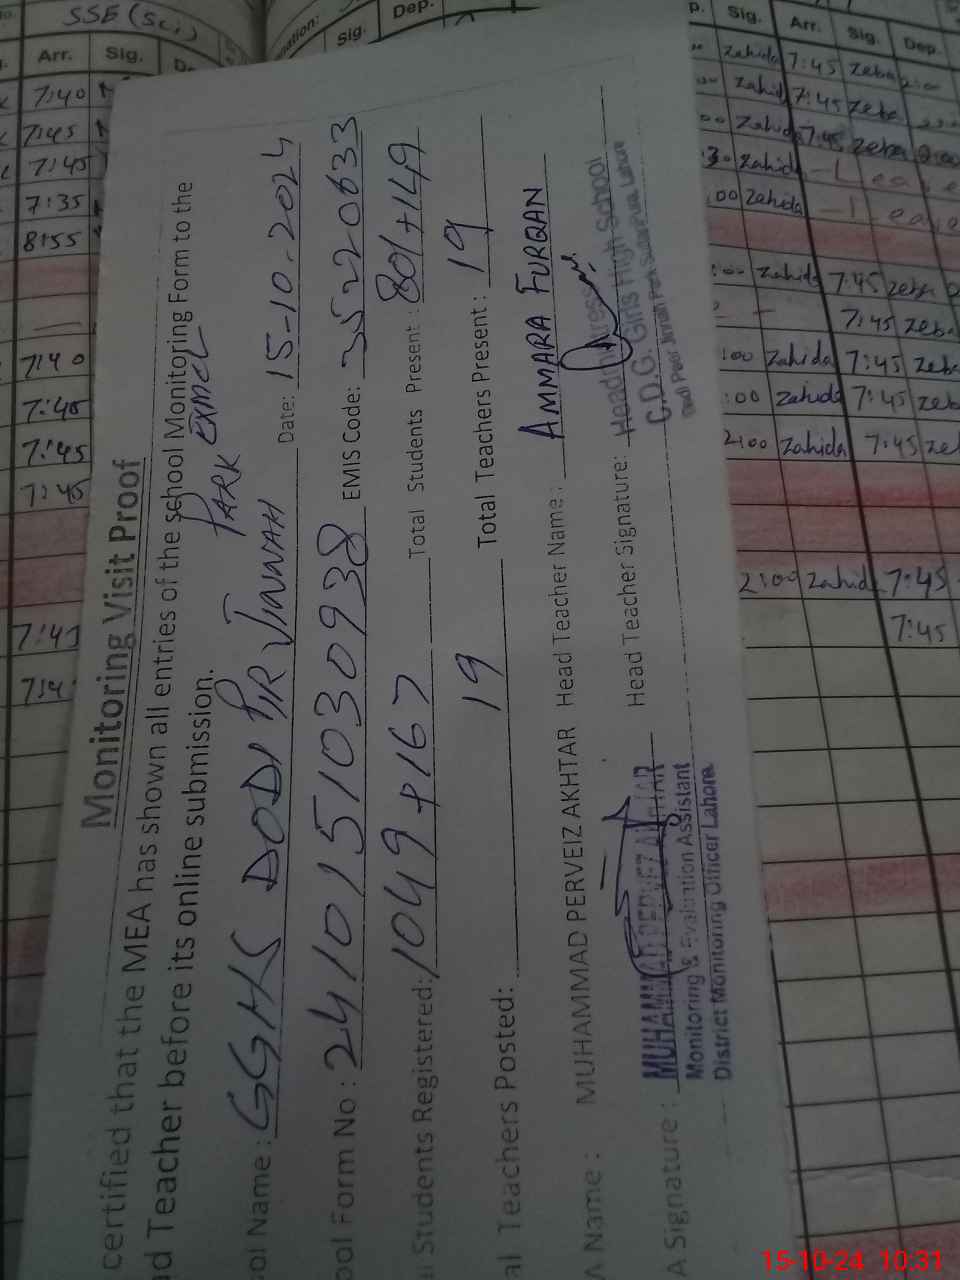 Monitoring Visit Proof
certified that the MEA has shown all entries of the school Monitoring Form to the
d Teacher before its online submission.
ool Name : GGHS DODI PIR JINNAH PARK Date: 15-10-2024
ool Form No : 2410151030938 EMIS Code: 35220633
l Students Registered: 1049+167 Total Students Present : 801+149
al Teachers Posted: 19 Total Teachers Present: 19
A Name : MUHAMMAD PERVEIZ AKHTAR Head Teacher Name: AMMARA FURQAN
A Signature : Head Teacher Signature:
MUHAMMAD PERVEZ AKHTAR
Monitoring & Evaluation Assistant
District Monitoring Officer Lahore
Headmistress
C.D.G. Girls High School
SSE (Sci)
Arr. Sig.
7:40
7:45
7:45
7:35
8:55
7:40
7:45
7:45
7:45
Sig. Dep.
Sig. Arr. Sig. Dep.
zahida 7:45 zeba 2:00
zahid 7:45 zeba
zahida 7:45 zeba 2:00
zahida
:00 zahida
:00 zahida 7:45 zeba
7:45 zeba
:00 zahida 7:45 zeb
:00 zahida 7:45 zeb
2:00 zahida 7:45 ze
2:00 zahid 7:45
7:45
15-10-24 10:31